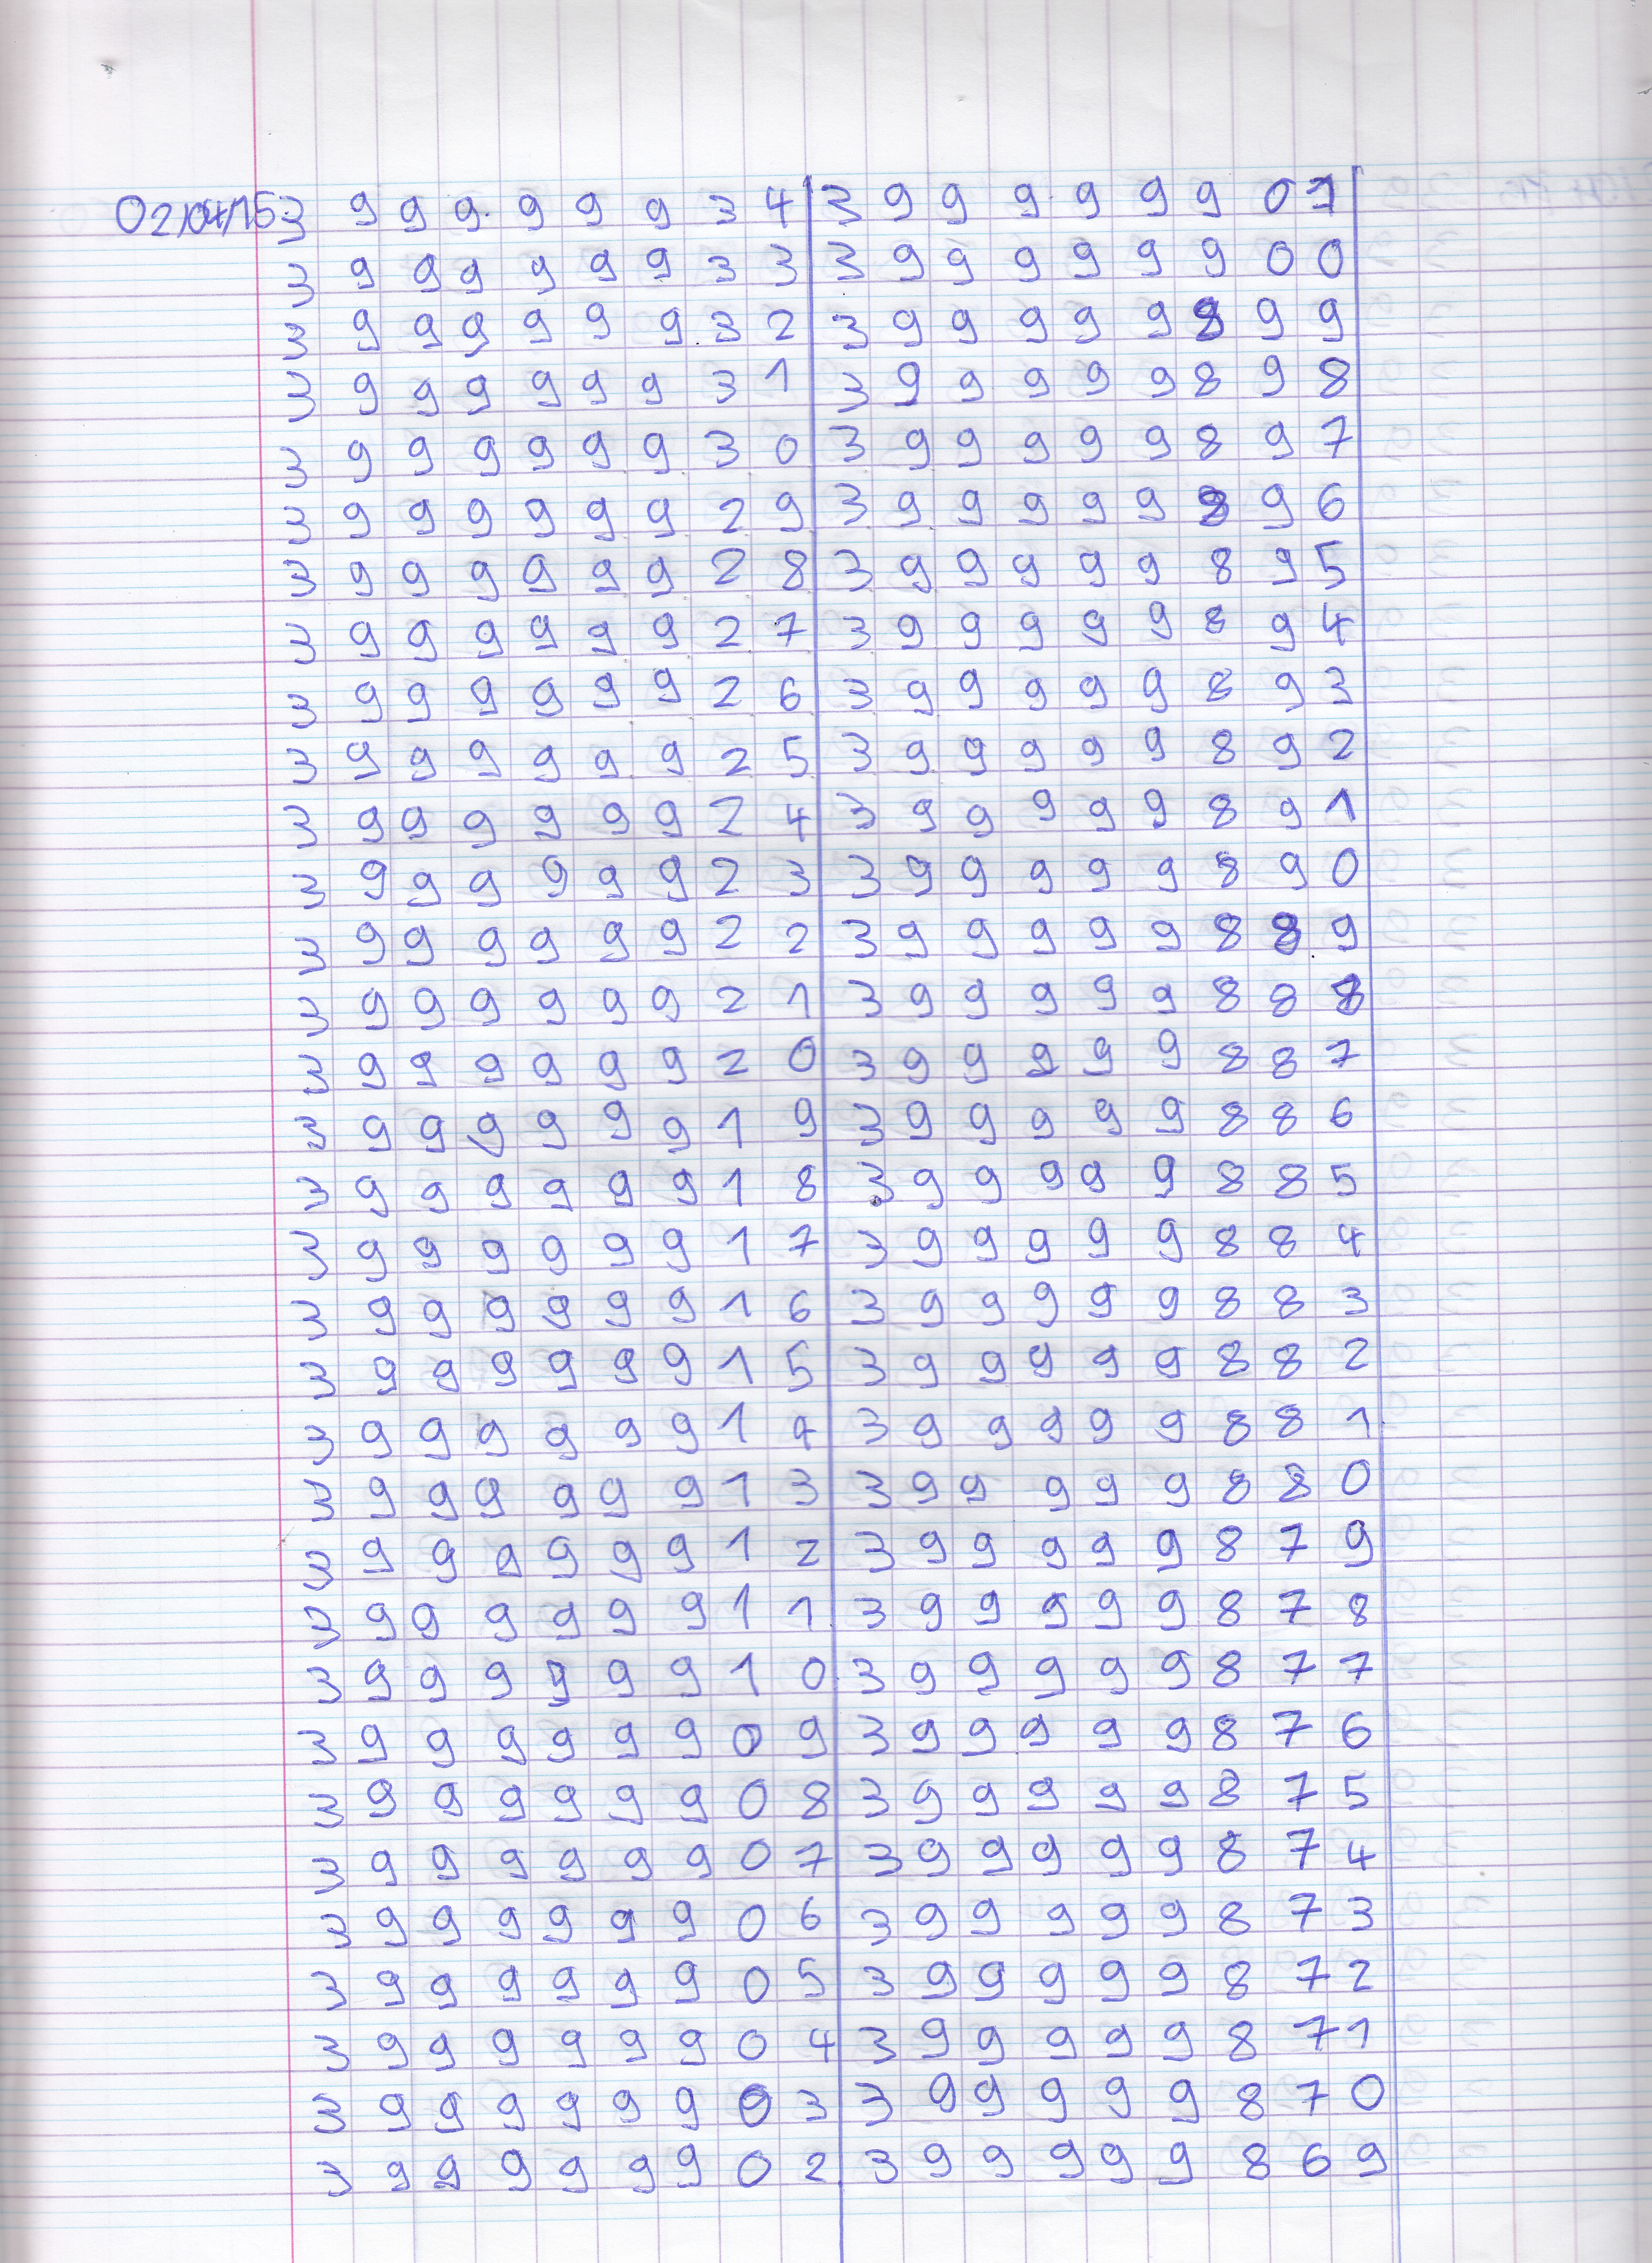 02/04/15: 3 9 9 9 9 9 9 3 4 3 9 9 9 9 9 9 0 1
3 9 9 9 9 9 9 3 3 3 9 9 9 9 9 9 0 0
3 9 9 9 9 9 9 3 2 3 9 9 9 9 9 8 9 9
3 9 9 9 9 9 9 3 1 3 9 9 9 9 9 8 9 8
3 9 9 9 9 9 9 3 0 3 9 9 9 9 9 8 9 7
3 9 9 9 9 9 9 2 9 3 9 9 9 9 9 8 9 6
3 9 9 9 9 9 9 2 8 3 9 9 9 9 9 8 9 5
3 9 9 9 9 9 9 2 7 3 9 9 9 9 9 8 9 4
3 9 9 9 9 9 9 2 6 3 9 9 9 9 9 8 9 3
3 9 9 9 9 9 9 2 5 3 9 9 9 9 9 8 9 2
3 9 9 9 9 9 9 2 4 3 9 9 9 9 9 8 9 1
3 9 9 9 9 9 9 2 3 3 9 9 9 9 9 8 9 0
3 9 9 9 9 9 9 2 2 3 9 9 9 9 9 8 8 9
3 9 9 9 9 9 9 2 1 3 9 9 9 9 9 8 8 8
3 9 9 9 9 9 9 2 0 3 9 9 9 9 9 8 8 7
3 9 9 9 9 9 9 1 9 3 9 9 9 9 9 8 8 6
3 9 9 9 9 9 9 1 8 3 9 9 9 9 9 8 8 5
3 9 9 9 9 9 9 1 7 3 9 9 9 9 9 8 8 4
3 9 9 9 9 9 9 1 6 3 9 9 9 9 9 8 8 3
3 9 9 9 9 9 9 1 5 3 9 9 9 9 9 8 8 2
3 9 9 9 9 9 9 1 4 3 9 9 9 9 9 8 8 1
3 9 9 9 9 9 9 1 3 3 9 9 9 9 9 8 8 0
3 9 9 9 9 9 9 1 2 3 9 9 9 9 9 8 7 9
3 9 9 9 9 9 9 1 1 3 9 9 9 9 9 8 7 8
3 9 9 9 9 9 9 1 0 3 9 9 9 9 9 8 7 7
3 9 9 9 9 9 9 0 9 3 9 9 9 9 9 8 7 6
3 9 9 9 9 9 9 0 8 3 9 9 9 9 9 8 7 5
3 9 9 9 9 9 9 0 7 3 9 9 9 9 9 8 7 4
3 9 9 9 9 9 9 0 6 3 9 9 9 9 9 8 7 3
3 9 9 9 9 9 9 0 5 3 9 9 9 9 9 8 7 2
3 9 9 9 9 9 9 0 4 3 9 9 9 9 9 8 7 1
3 9 9 9 9 9 9 0 3 3 9 9 9 9 9 8 7 0
3 9 9 9 9 9 9 0 2 3 9 9 9 9 9 8 6 9